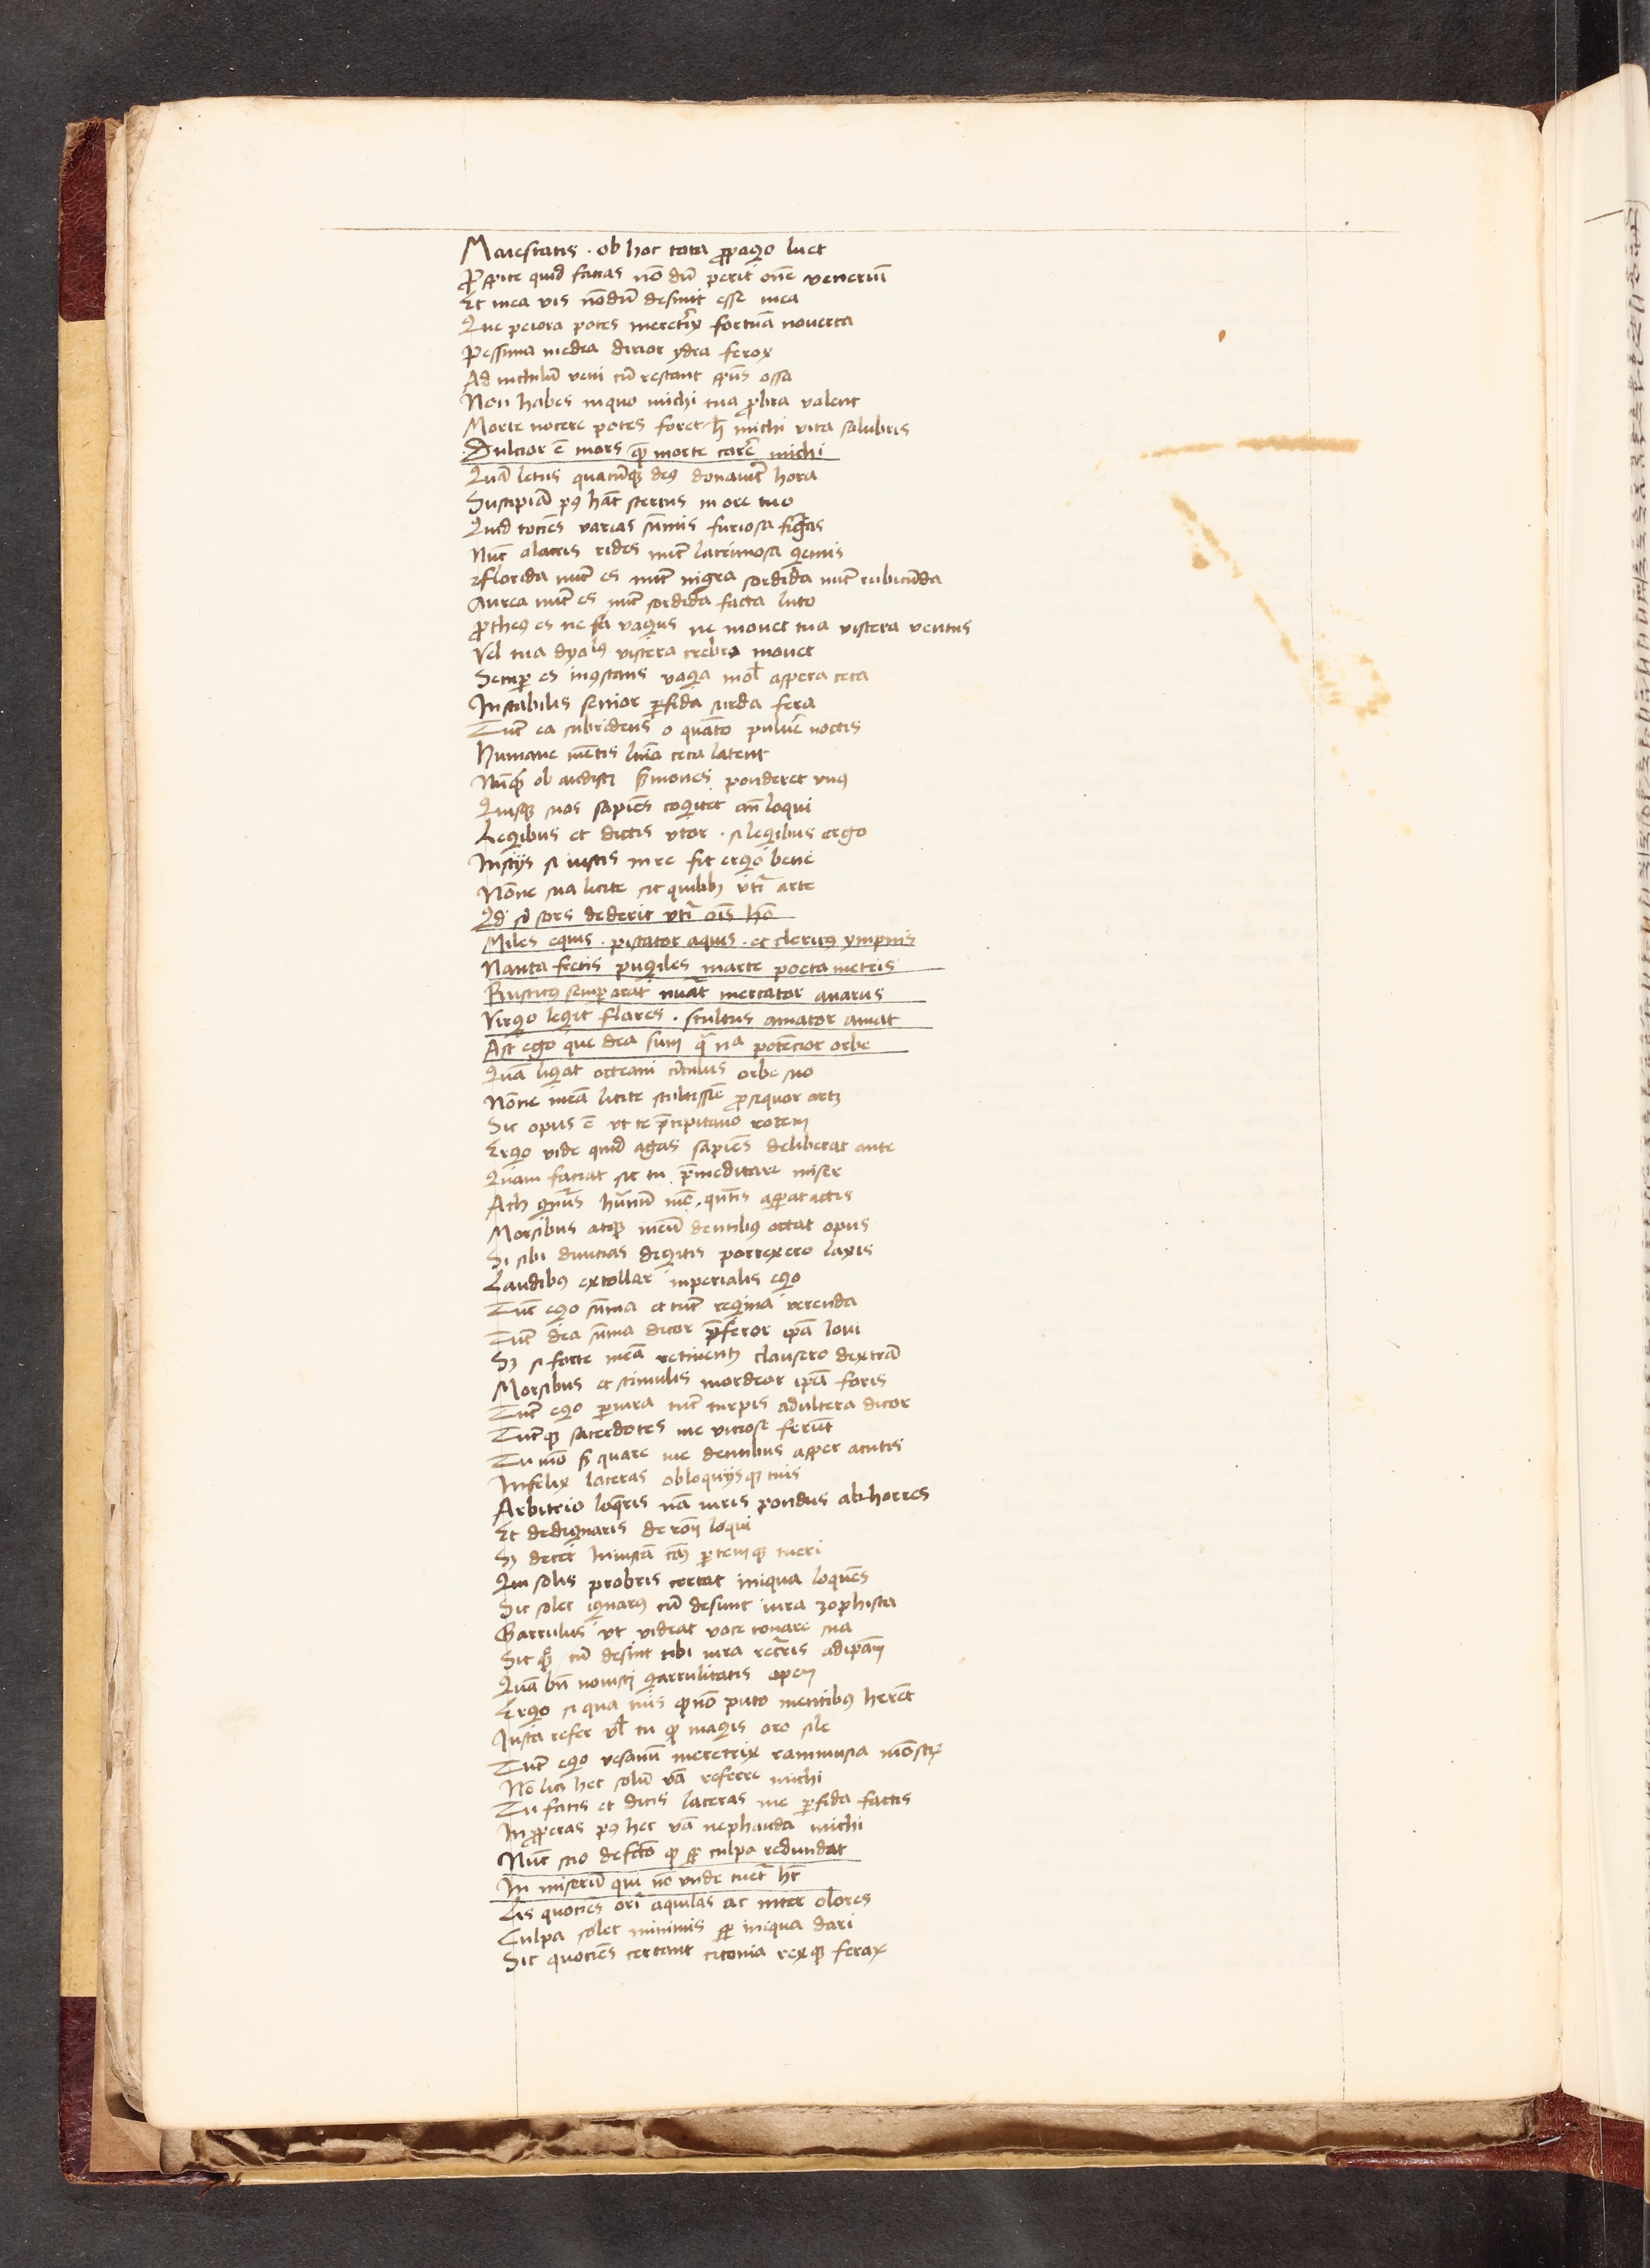 Maiestatis . ob hoc tota ꝓpago luet
Prospice quid facias nō dū perit om̄e venenū
Et mea vis nōdū desinit esse mea
Que peiora potes meretrix fortuā nouerca
Pessima medea dirior ydra ferox
Ad nichilū veni cū restant ossa
Non habes inquo michi tua ꝓbra valent
Morte nocere potes foret michi vita salubris
Dulcior ē mors qͣꝫ morte carē michi
Quā letus quacūqꝫ deꝰ donauit hora
Suscipiā pꝰ hāc stercus in ore tuo
Quid tociēs varias sūmis furiosa figͣas
Nūc alacris rides nūc lacrimosa gemis
Florida nūc es nūc nigra sordida nūc rubicūda
Aurea nūc es nūc sordida facta luto
ꝓtheꝰ es ne vagus ne mouet tua viscera ventus
Vel tua viscera crebro mouet
Semꝑ es incōstans vaga aspera ceca
Instabilis senior ꝑfida surda fera
Tūc ea subridens o quāto puluē noctis
Humane mētis lumīa ceca latent
Nūqͣꝫ ob audisti sermones ponderet vnꝰ
Quisqꝫ suos sapiēs cogitet an̄ loqui
Legibus et dictis vtor . si legibus ergo
Iustis si iustis in re fit ergo bene
Nōne sua licite sit quilibꝫ vti arte
Qd si sors dederit vti ois ho
Miles equis . piscator aquis . et clericꝰ ympnis
Nauta fretis pugiles marte poeta metris
Rusticꝰ semꝑ arat nuāt mercator auarus
Virgo legit flores . stultus amator amat
Ast ego que dea sum qͣ nͣ potēcior orbe
Quā ligat occeani circulus orbe suo
Nōne meā licite stultissīe ꝓsequor artē
Sic opus ē vt te p̄cipitauo rotem
Ergo vide quid agas sapiēs deliberat ante
Quam faciat sic tu p̄meditare miser
Ach genus hūanū me quātis asperat actis
Morsibus atqꝫ meū dentibꝰ artat opus
Si sibi diuicias digitis porrexero laxis
Laudibꝰ extollar inperialis ego
Tūc ego sūma et tūc regina verenda
Tūc dea sūma dicor p̄feror ip̄a ioui
Sꝫ si forte meā retinentē clausero dextrā
Morsibus et stimulis mordeor ip̄a foris
Tūc ego ꝑiura tūc turpis adultera dicor
Tūcqꝫ sacerdotes me viciose ferūt
Tu mō quare me dentibus asper acutis
Infelix laceras obloquijsqꝫ tuis
Arbitrio loqͣris nā iuris pondus abhorres
Et dedignaris de rōne loqui
Sꝫ decet iniustā cāꝫ ꝑtemqꝫ tueri
Qui solis probris certat iniqua loquēs
Sic solet ignarꝰ cū desunt iura zophista
Garrulus vt videat voce tonare sua
Sic cū desint tibi iura adipam
Quā bn̄ nouisti garrulitatis opem
Ergo si qua tuis nō puto mentibꝰ herēt
Iusta refer vl̄ tu qͦ magis oro sile
Tūc ego vesanū meretrix ramnusia mōstrū
Nō lic̄ hec solū vā referre michi
Tu factis et dictis laceras me ꝑfida factis
Inꝓperas pꝰ hec vā nephanda michi
Nūc scio defcō qͦ sꝑ culpa redundat
In miserū qui nō vnde tuet̄ hꝫ
Lis quocies ori aquilas ac inter olores
Culpa solet minimis sꝑ iniqua dari
Sic quociēs certant ciconia rexqꝫ ferax